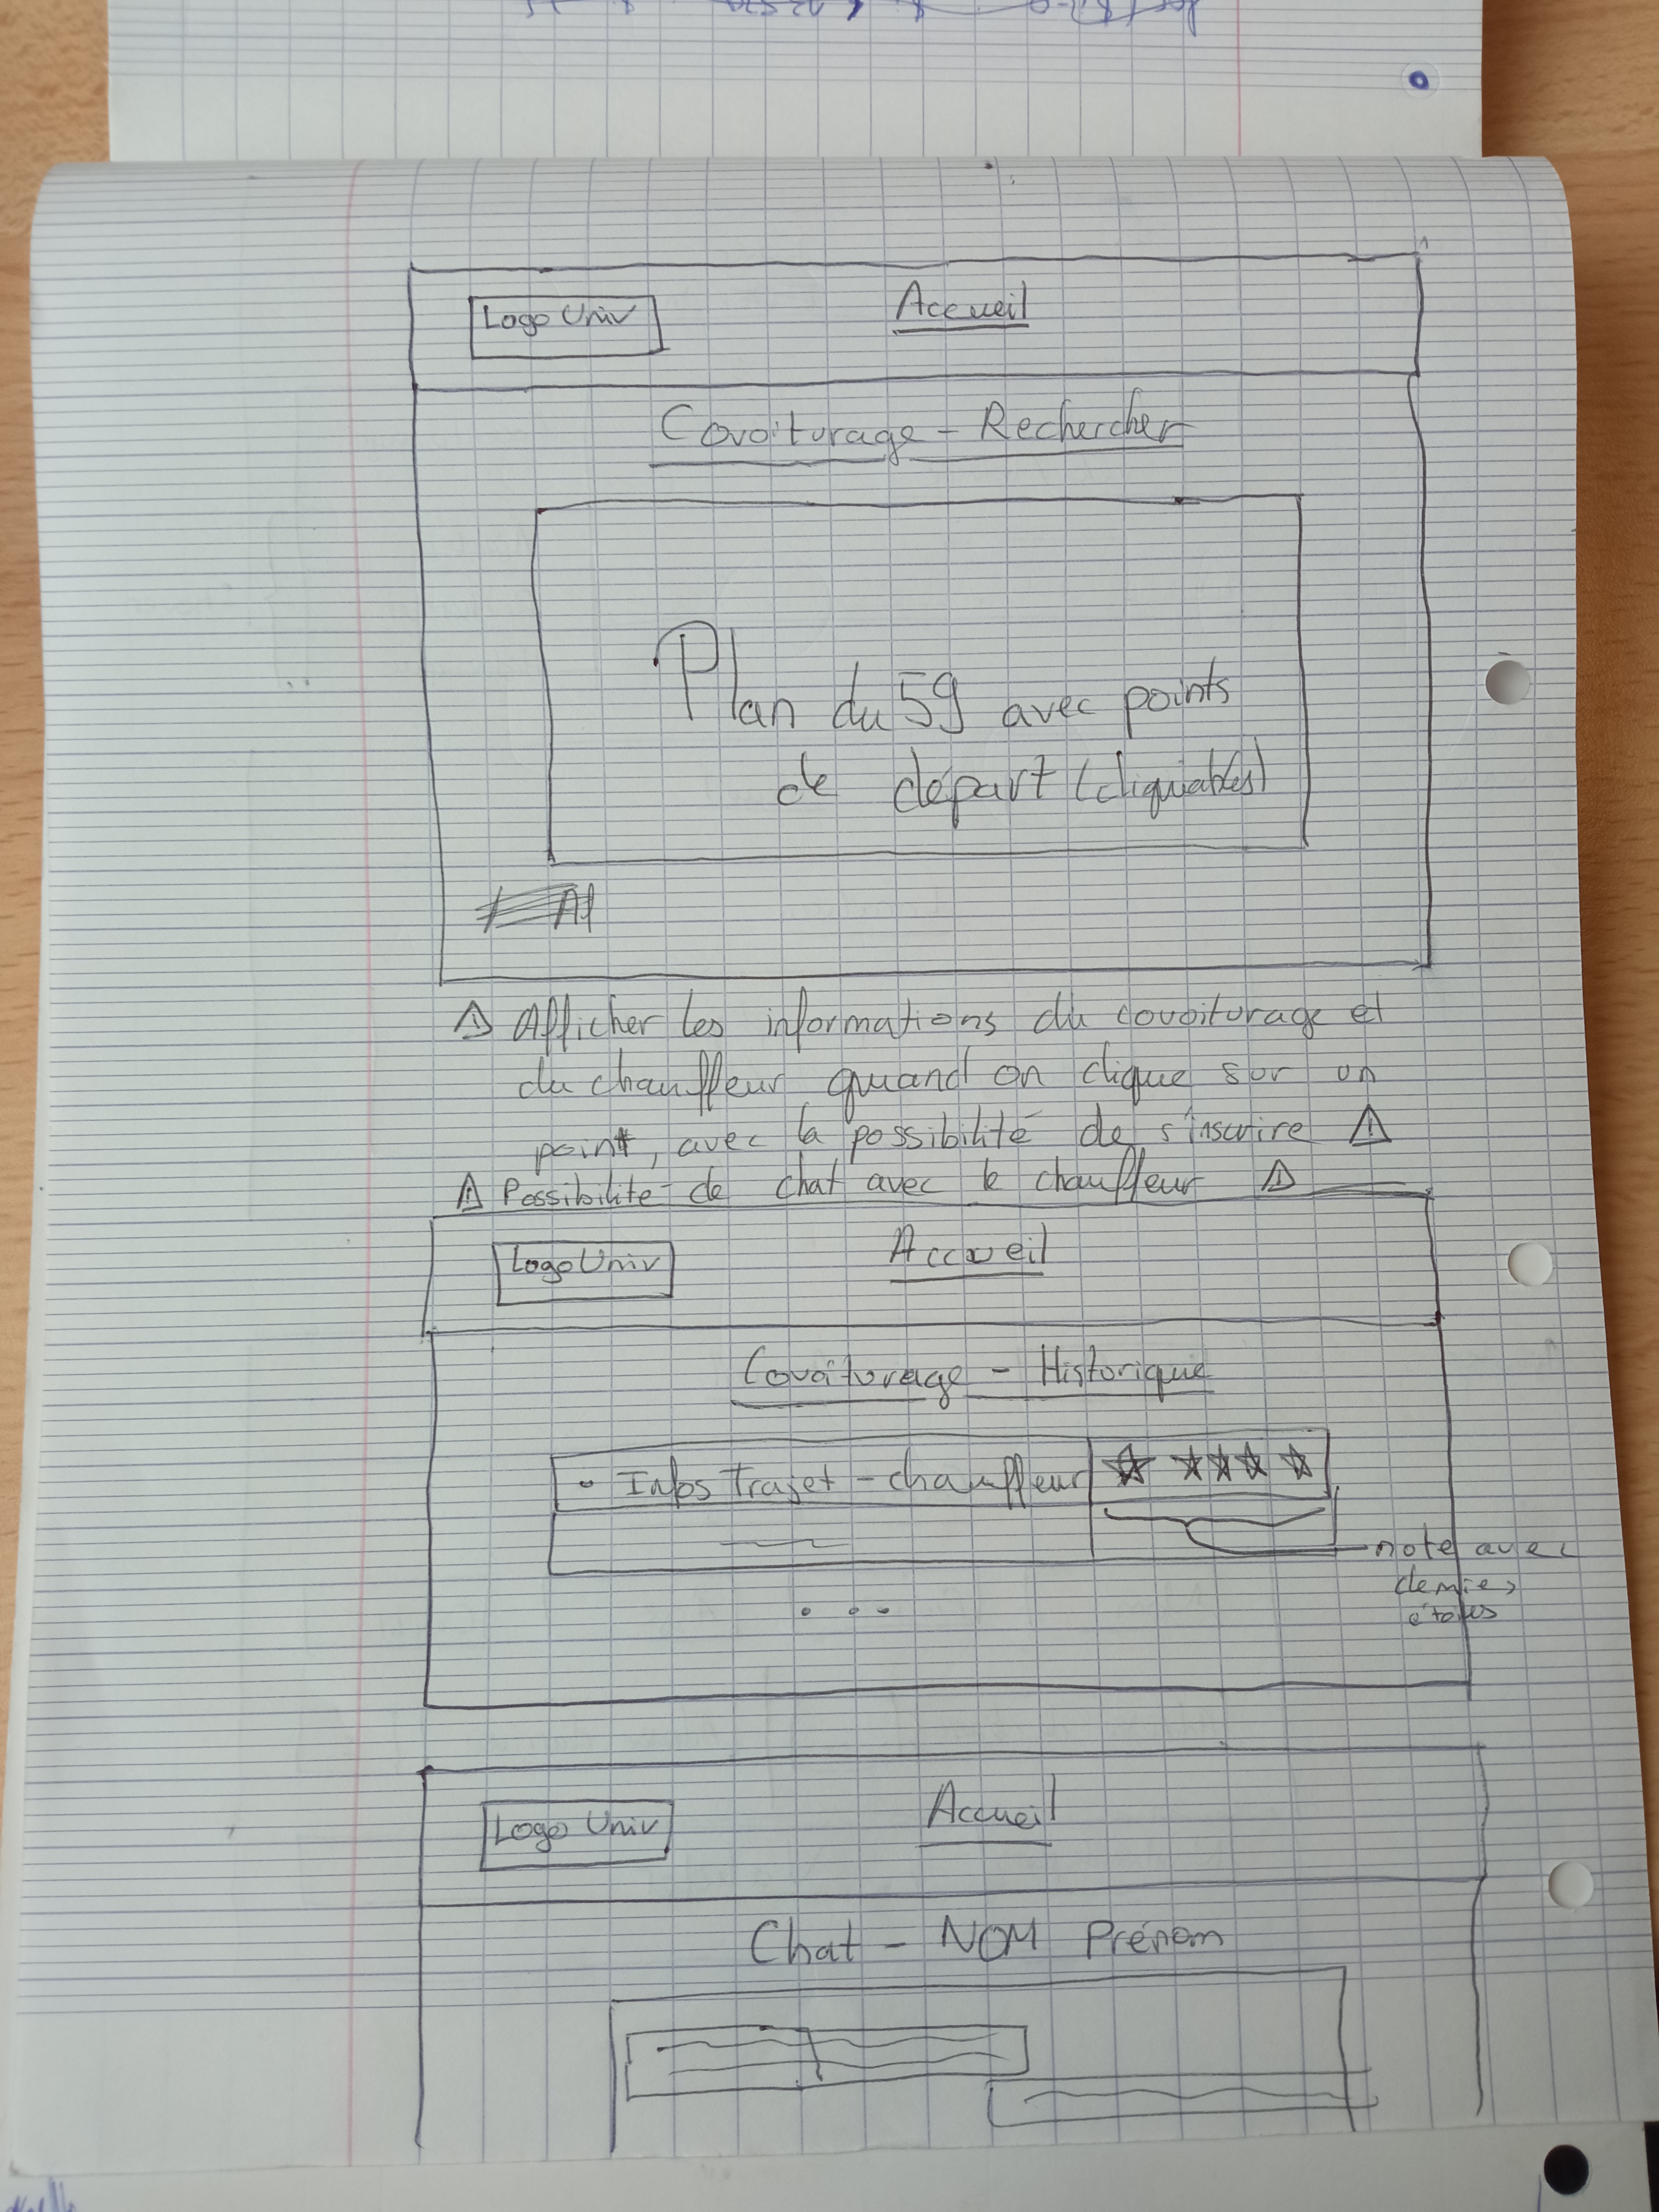 Logo Univ
Accueil
Covoiturage - Rechercher
Plan du 59 avec points
de départ (cliquables)
⚠ Afficher les informations du covoiturage et
du chauffeur quand on clique sur un
point, avec la possibilité de s'inscrire ⚠
⚠ Possibilité de chat avec le chauffeur ⚠
Logo Univ
Accueil
Covoiturage - Historique
• Infos Trajet - chauffeur ☆ ☆ ☆ ☆ ☆
note avec
demies
étoiles
• • •
Logo Univ
Accueil
Chat - NOM Prénom